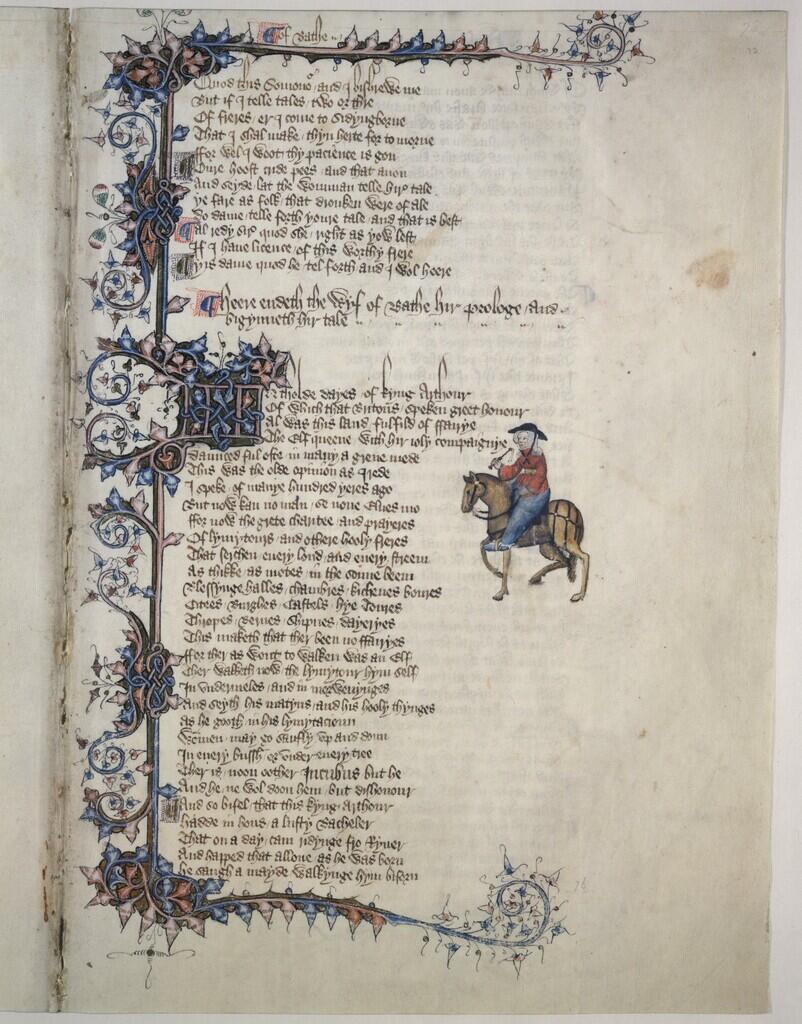 Of Bathe
Quod this Somonour and I bishrewe me
But if I telle tales two or thre
Of freres er I come to Sidyngborne
That I shal make thyn herte for to morne
ffor wel I woot thy pacience is gon
Oure hoost cride pees and that anon
And seyde lat the womman telle hire tale
ye fare as folk that dronken were of ale
Do dame telle forth youre tale and that is best
Al redy sire quod she right as yow lest
If I haue licence of this worthy frere
yis dame quod he tel forth and I wol heere
Heere endeth the Wyf of Bathe hir prologe and
bigynneth hir tale
In tholde dayes of kyng Arthour
Of which that Britons speken greet honour
Al was this land fulfild of ffairye
The Elf queene with hir ioly compaignye
daunced ful ofte in many a grene mede
This was the olde opinion as I rede
I speke of manye hundred yeres ago
But now kan no man se none Elues mo
ffor now the grete charitee and prayeres
Of lymytours and othere hooly freres
That serchen euery lond and euery streem
As thikke as motes in the sonne beem
Blessynge halles chambres kichenes boures
Citees Burghes Castels hye Toures
Thropes Bernes Shipnes dayeryes
This maketh that ther been no ffairyes
ffor ther as wont to walken was an Elf
Ther walketh now the lymytour hym self
In vndermeles and in morwenynges
And seyth his matyns and his hooly thynges
as he gooth in his lymytacioun
Wommen may go saufly vp and doun
In euery bussh or vnder euery tree
Ther is noon oother Incubus but he
And he ne wol doon hem but dishonour
And so bifel that this kyng Arthour
hadde in hous a lusty Bacheler
That on a day cam ridynge fro Ryuer
And happed that allone as he was born
he saugh a mayde walkynge hym biforn